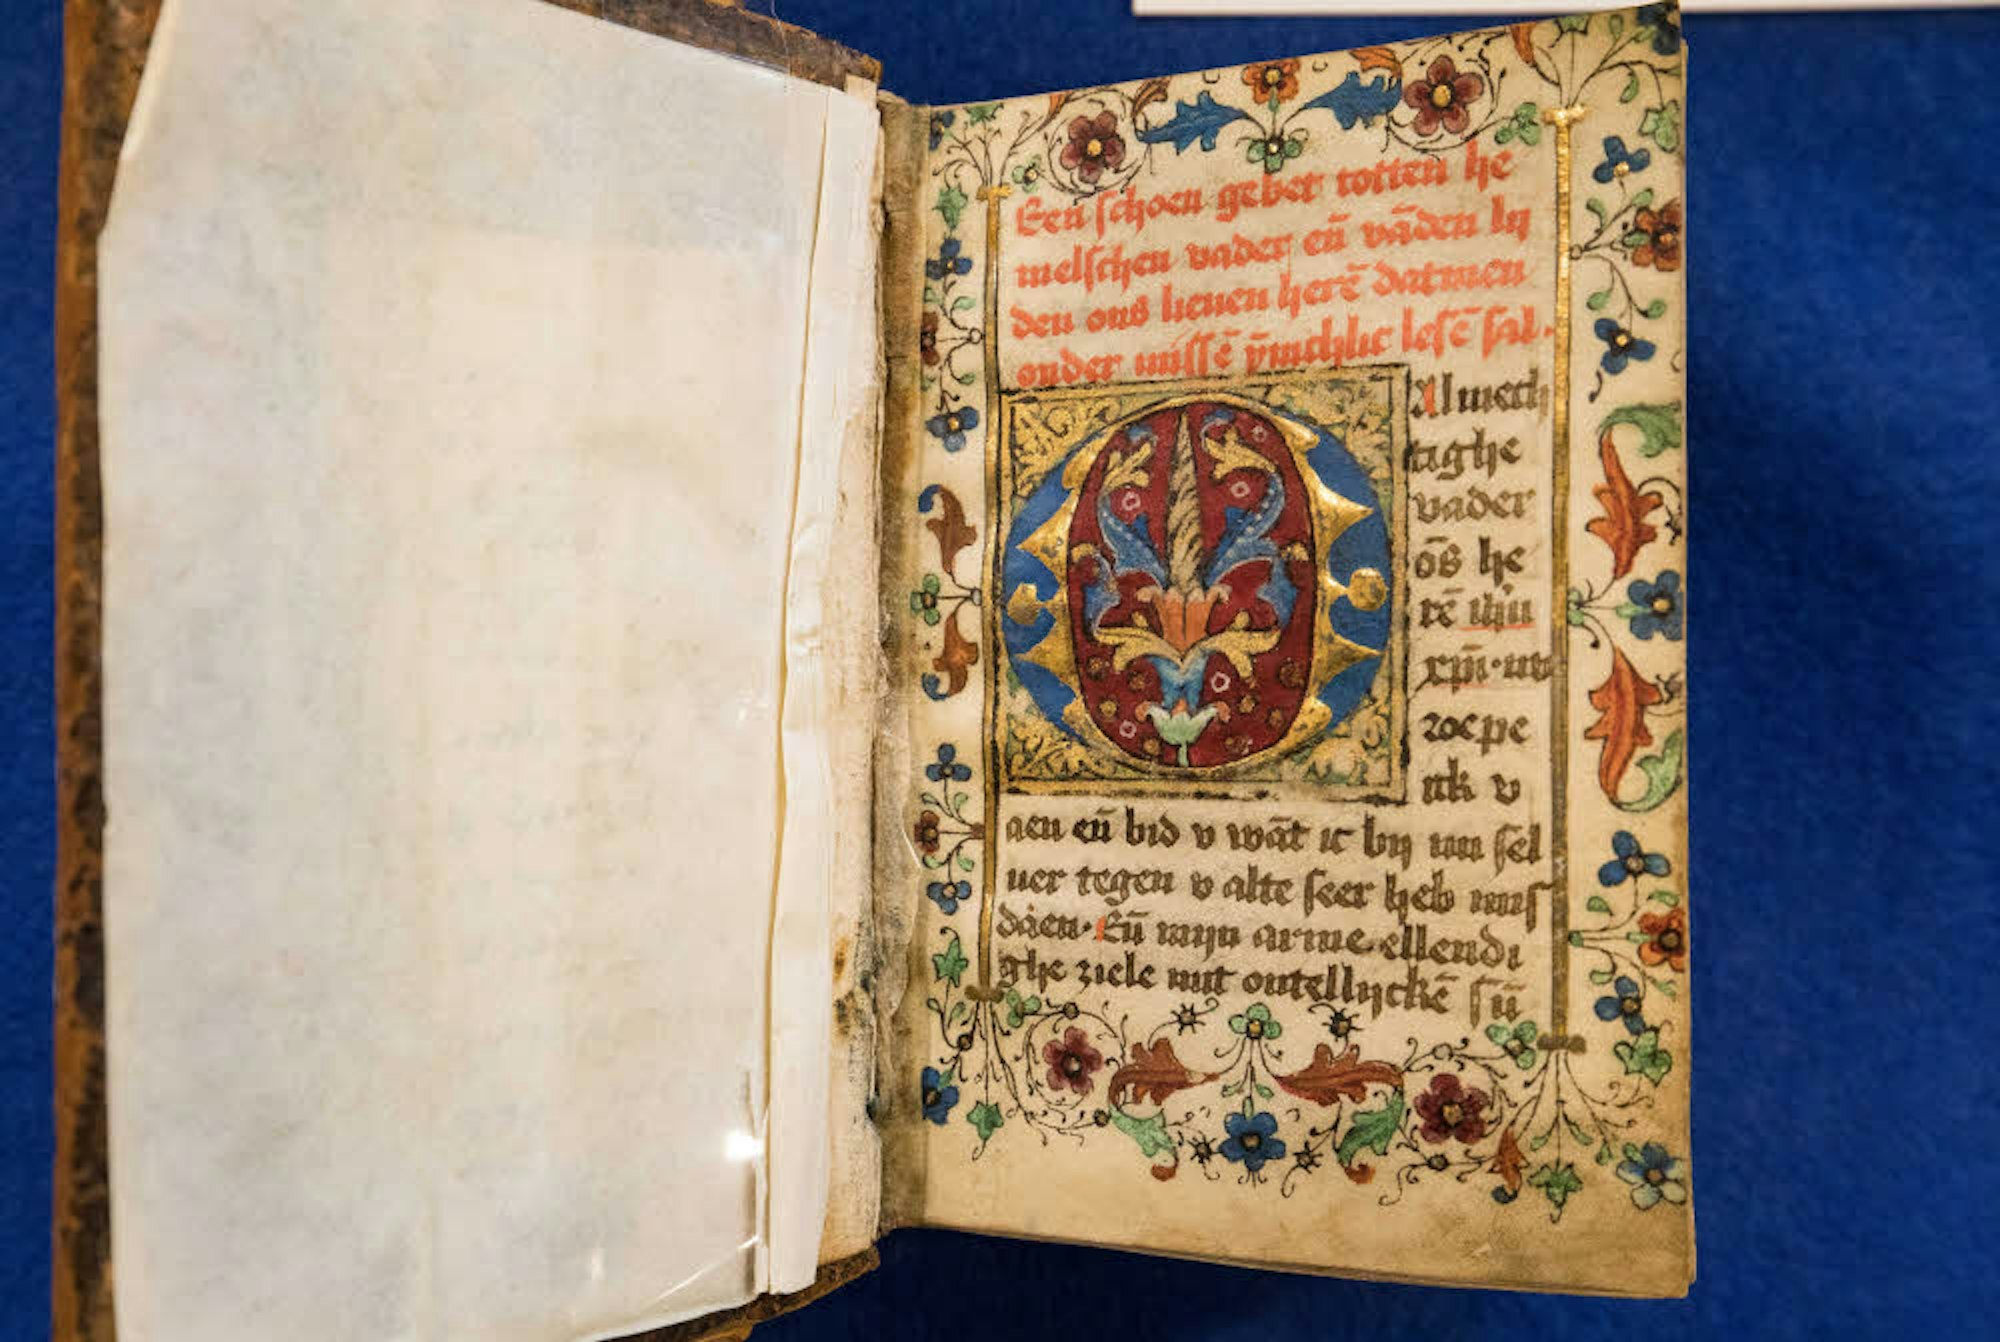 Een schoen gebet totten he
melschen vader eñ vāden lij
den ons lieuen herē datmen
onder missē ỹnichlic lesē sal.
O Almech
tighe
vader
ōs he
rē ihū
xp̄i · uv
roepe
ick v
aen eñ bid v wāt ic bij mi sel
uer tegen v alte seer heb mis
daen. Eñ mijn arme ellendi
ghe ziele mit ontellijckē sū